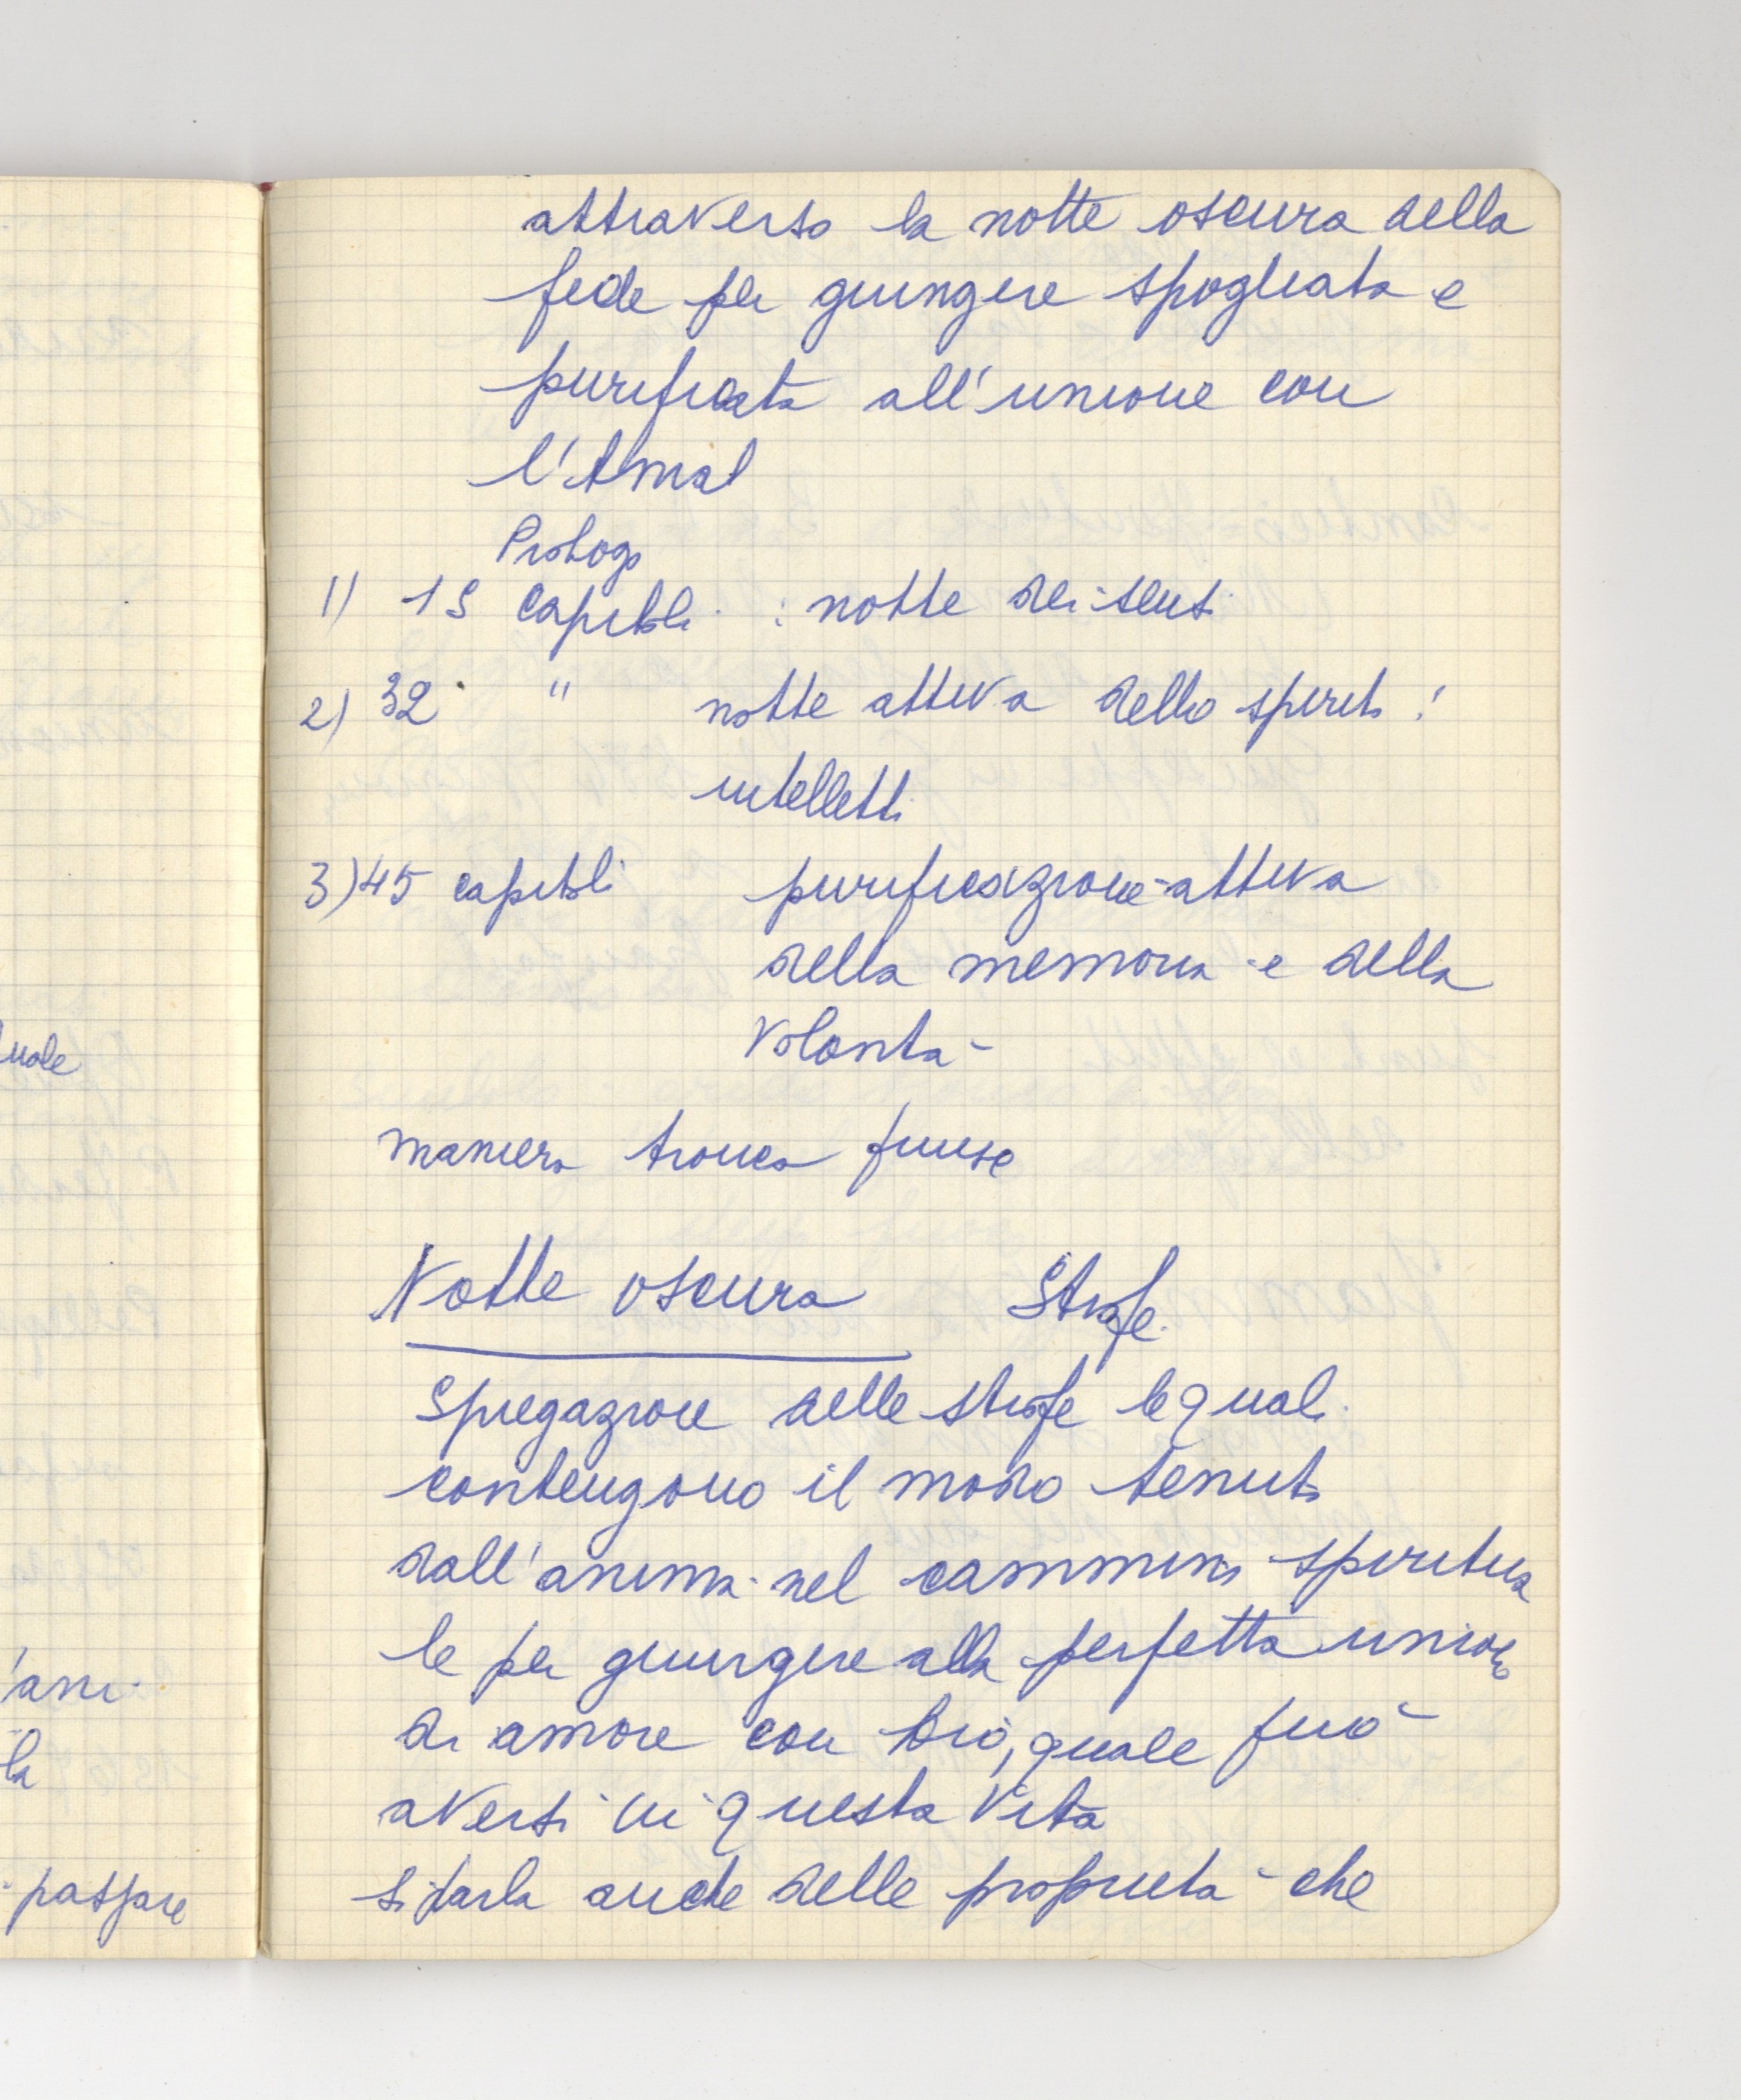 attraverso la notte oscura della
fede per giungere spogliata e
purificata all'unione con
l'Amat
Prologo
1) 15 capitoli : notte dei sensi
2) 32 " notte attiva dello spirito :
intelletto
3) 45 capitoli purificazione attiva
della memoria e della
volontà
maniera tronca finisce
Notte oscura Strofe
Spiegazione delle strofe le quali
contengono il modo tenuto
dall'anima nel cammino spiritua
le per giungere alla perfetta unione
di amore con Dio, quale può
aversi in questa vita
si parla anche delle proprietà che
uale
'ani
la
passare